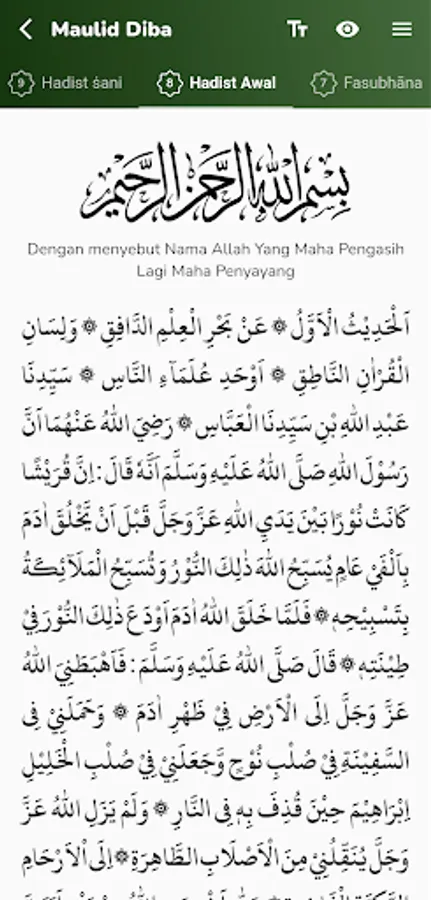 Maulid Diba
Tт
9 Hadist śani
8 Hadist Awal
7 Fasubhāna
بِسْمِ اللّٰهِ الرَّحْمٰنِ الرَّحِيْمِ
Dengan menyebut Nama Allah Yang Maha Pengasih
Lagi Maha Penyayang
اَلْحَدِيْثُ الْاَوَّلُ ۞ عَنْ بَحْرِ الْعِلْمِ الدَّافِقِ ۞ وَلِسَانِ
الْقُرْاٰنِ النَّاطِقِ ۞ اَوْحَدِ عُلَمَآءِ النَّاسِ ۞ سَيِّدِنَا
عَبْدِ اللهِ بْنِ سَيِّدِنَا الْعَبَّاسِ ۞ رَضِيَ اللهُ عَنْهُمَا اَنَّ
رَسُوْلَ اللهِ صَلَّى اللهُ عَلَيْهِ وَسَلَّمَ اَنَّهُ قَالَ : اِنَّ قُرَيْشًا
كَانَتْ نُوْرًا بَيْنَ يَدَيِ اللهِ عَزَّ وَجَلَّ قَبْلَ اَنْ يَّخْلُقَ اٰدَمَ
بِاَلْفَيْ عَامٍ يُسَبِّحُ اللهَ ذٰلِكَ النُّوْرُ وَتُسَبِّحُ الْمَلَآئِكَةُ
بِتَسْبِيْحِهٖ ۞ فَلَمَّا خَلَقَ اللهُ اٰدَمَ اَوْدَعَ ذٰلِكَ النُّوْرَ فِيْ
طِيْنَتِهٖ ۞ قَالَ صَلَّى اللهُ عَلَيْهِ وَسَلَّمَ : فَاَهْبَطَنِيَ اللهُ
عَزَّ وَجَلَّ اِلَى الْاَرْضِ فِيْ ظَهْرِ اٰدَمَ ۞ وَحَمَلَنِيْ فِى
السَّفِيْنَةِ فِيْ صُلْبِ نُوْحٍ وَّجَعَلَنِيْ فِيْ صُلْبِ الْخَلِيْلِ
اِبْرَاهِيْمَ حِيْنَ قُذِفَ بِهٖ فِى النَّارِ ۞ وَلَمْ يَزَلِ اللهُ عَزَّ
وَجَلَّ يُنَقِّلُنِيْ مِنَ الْاَصْلَابِ الطَّاهِرَةِ ۞ اِلَى الْاَرْحَامِ